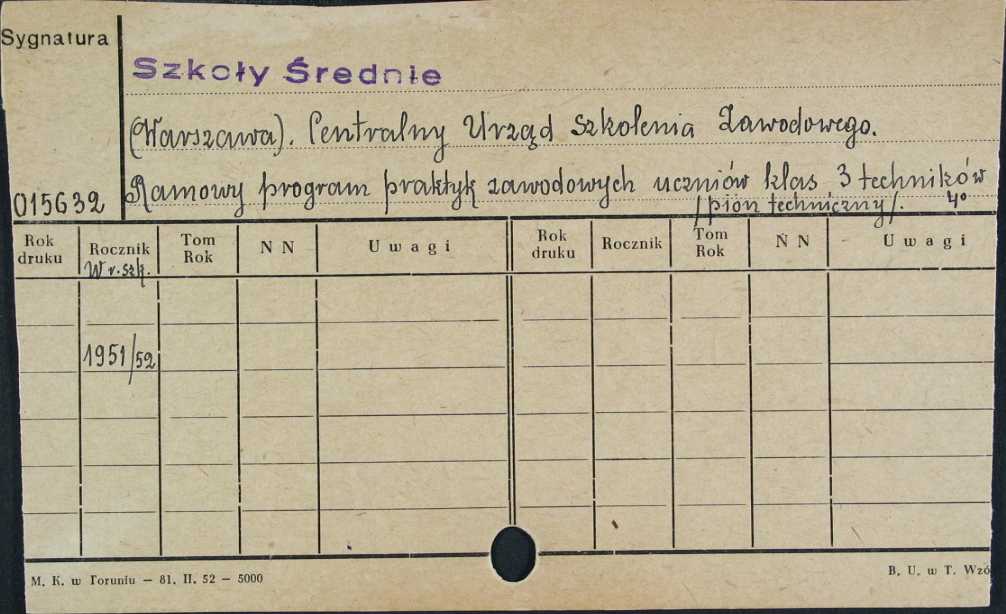 Sygnatura
Szkoły Średnie
(Warszawa). Centralny Urząd Szkolenia Zawodowego.
015632 Ramowy program praktyk zawodowych uczniów klas 3 techników
/pion techniczny/. 4°
Rok druku Rocznik Tom Rok N N Uwagi Rok druku Rocznik Tom Rok N N Uwagi
W r. szk.
1951/52
M. K. w Toruniu — 81. II. 52 — 5000 B. U. w T. Wzó